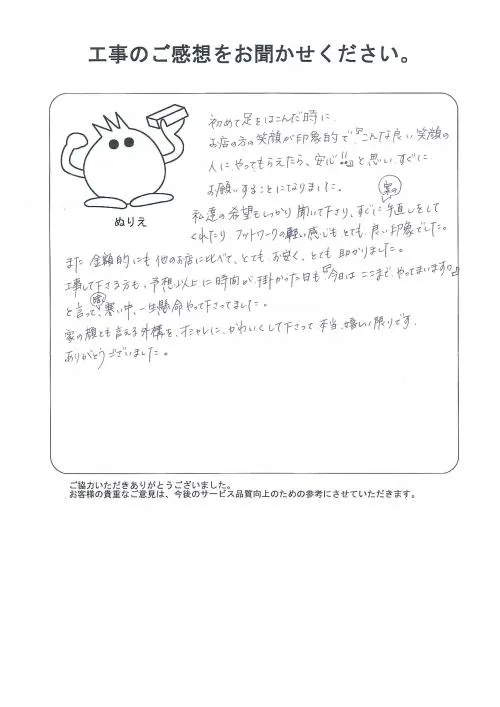 工事のご感想をお聞かせください。
初めて足をはこんだ時に
お店の方の笑顔が印象的で『こんな良い笑顔の
人にやってもらえたら、安心!!』と思い、すぐに
お願いすることになりました。
ぬりえ
私達の希望もしっかり聞いて下さり、すぐに案の手直しをして
くれたり フットワークの軽い感じも とても 良い印象でした。
また 金額的にも 他のお店に比べて、とても お安く、とても 助かりました。
工事して下さる方も、予想以上に時間が掛かった日も『今日は ここまで やってまいます。』
と言って、暗い寒い中、一生懸命やって下さってました。
家の顔とも言える外構を、オシャレに、かわいくして下さって 本当 嬉しい限りです。
ありがとうございました。
ご協力いただきありがとうございました。
お客様の貴重なご意見は、今後のサービス品質向上のための参考にさせていただきます。